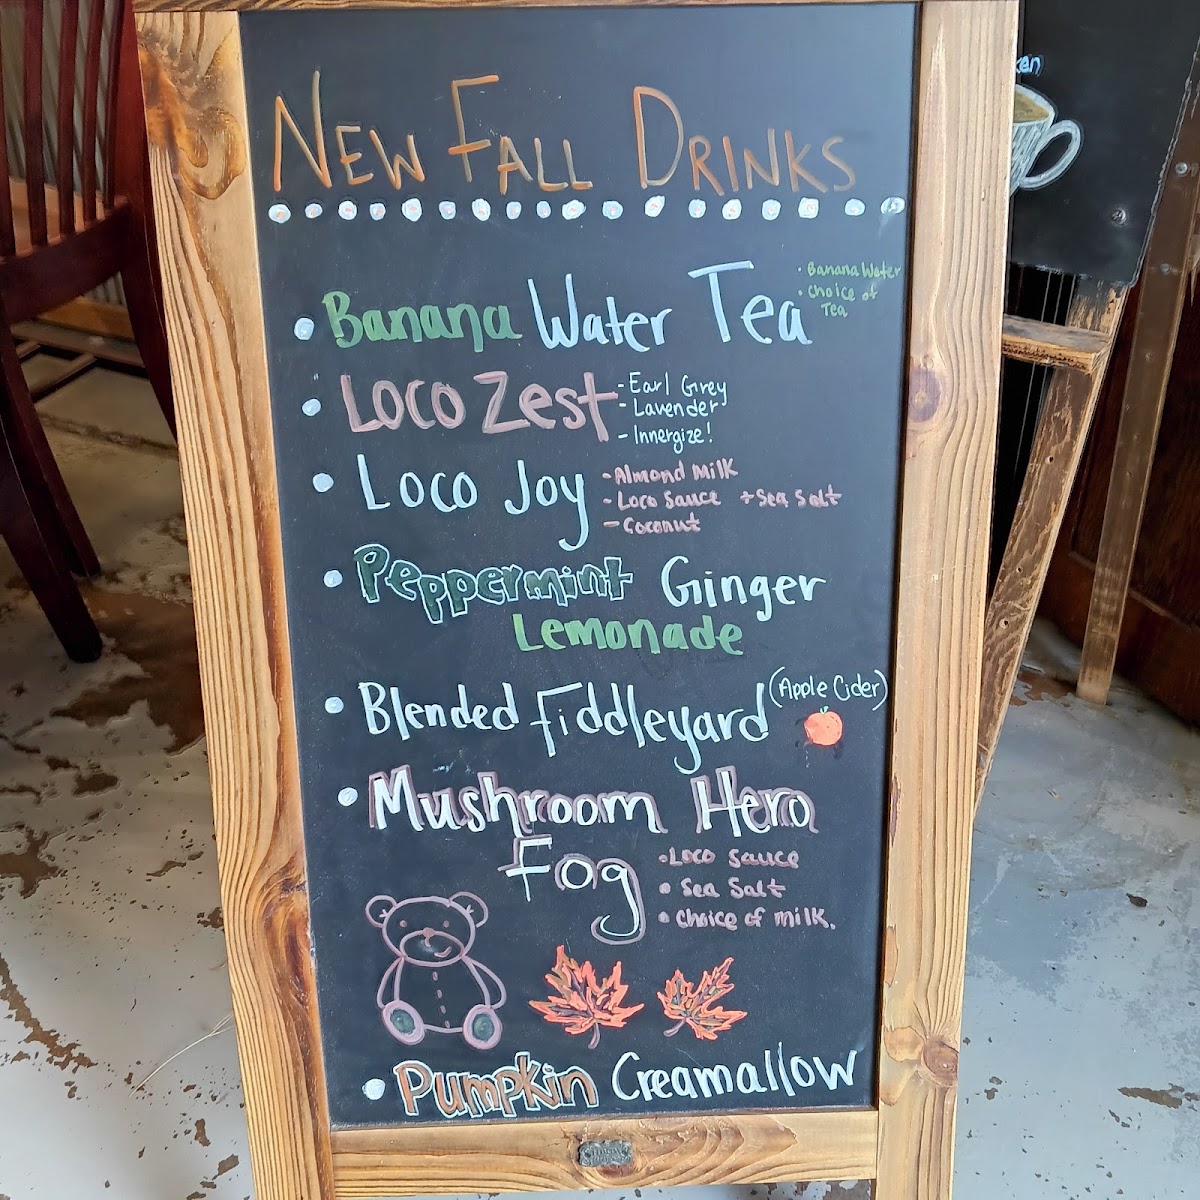 New Fall Drinks
Banana Water Tea
• Banana Water
• Choice of
Tea
Loco Zest
- Earl Grey
- Lavender
- Innergize!
Loco Joy
- Almond Milk
- Loco Sauce + Sea Salt
- Coconut
Peppermint Ginger
Lemonade
Blended Fiddleyard (Apple Cider)
Mushroom Hero
Fog
• Loco Sauce
• Sea Salt
• Choice of milk.
Pumpkin Creamallow